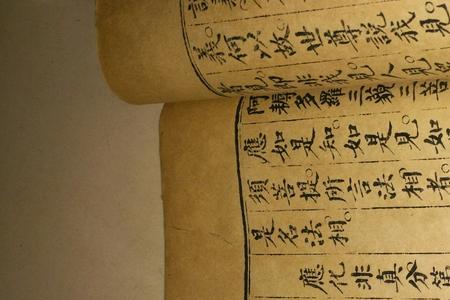 義。何以故世尊說我見
即非我見人見
阿耨多羅三藐三菩
應如是知。如是見。如
須菩提。所言法相者。
是名法相。
應化非真分第